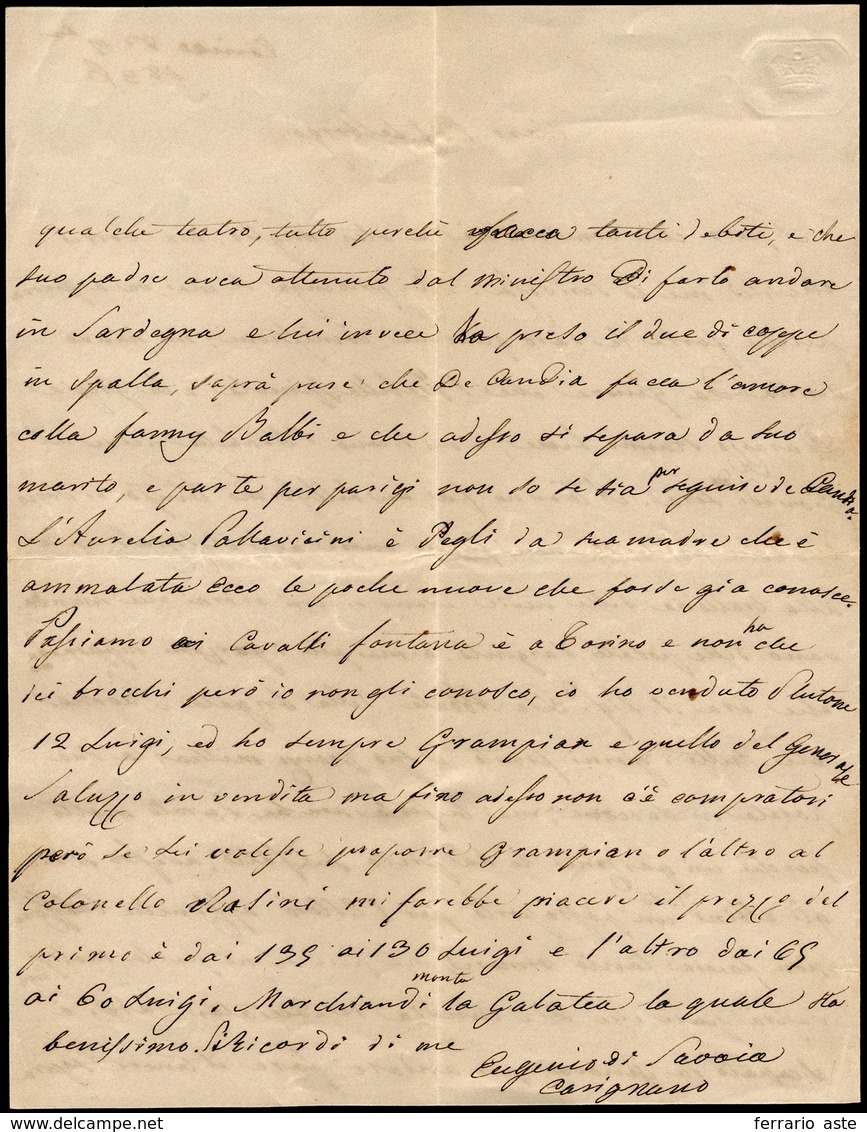 qualche teatro, tutto perchè facea tanti debiti, e che
suo padre avea ottenuto dal ministro di farlo andare
in Sardegna e lui invece ha preso il due di coppe
in spalla, saprà pure che De Candia facea l'amore
colla fanny Balbi e che adesso si separa da suo
marito, e parte per parigi non so se sia per seguire de Candia.
L'Aurelia Pallavicini è Pegli da sua madre che è
ammalata Ecco le poche nuove che forse già conosce.
Passiamo ai Cavalli fontana è a Torino e non ha che
dei brocchi però io non gli conosco, io ho venduto Plutone
12 Luigi, ed ho sempre Grampian e quello del Generale
Saluzzo in vendita ma fino adesso non c'è compratori
però se Lei volesse proporre Grampian o l'altro al
Colonello Rasini mi farebbe piacere il prezzo del
primo è dai 135 ai 130 Luigi e l'altro dai 65
ai 60 Luigi. Marchiandi monta la Galatea la quale sta
benissimo. Si Ricordi di me
Eugenio di Savoia
Carignano
ferrario aste